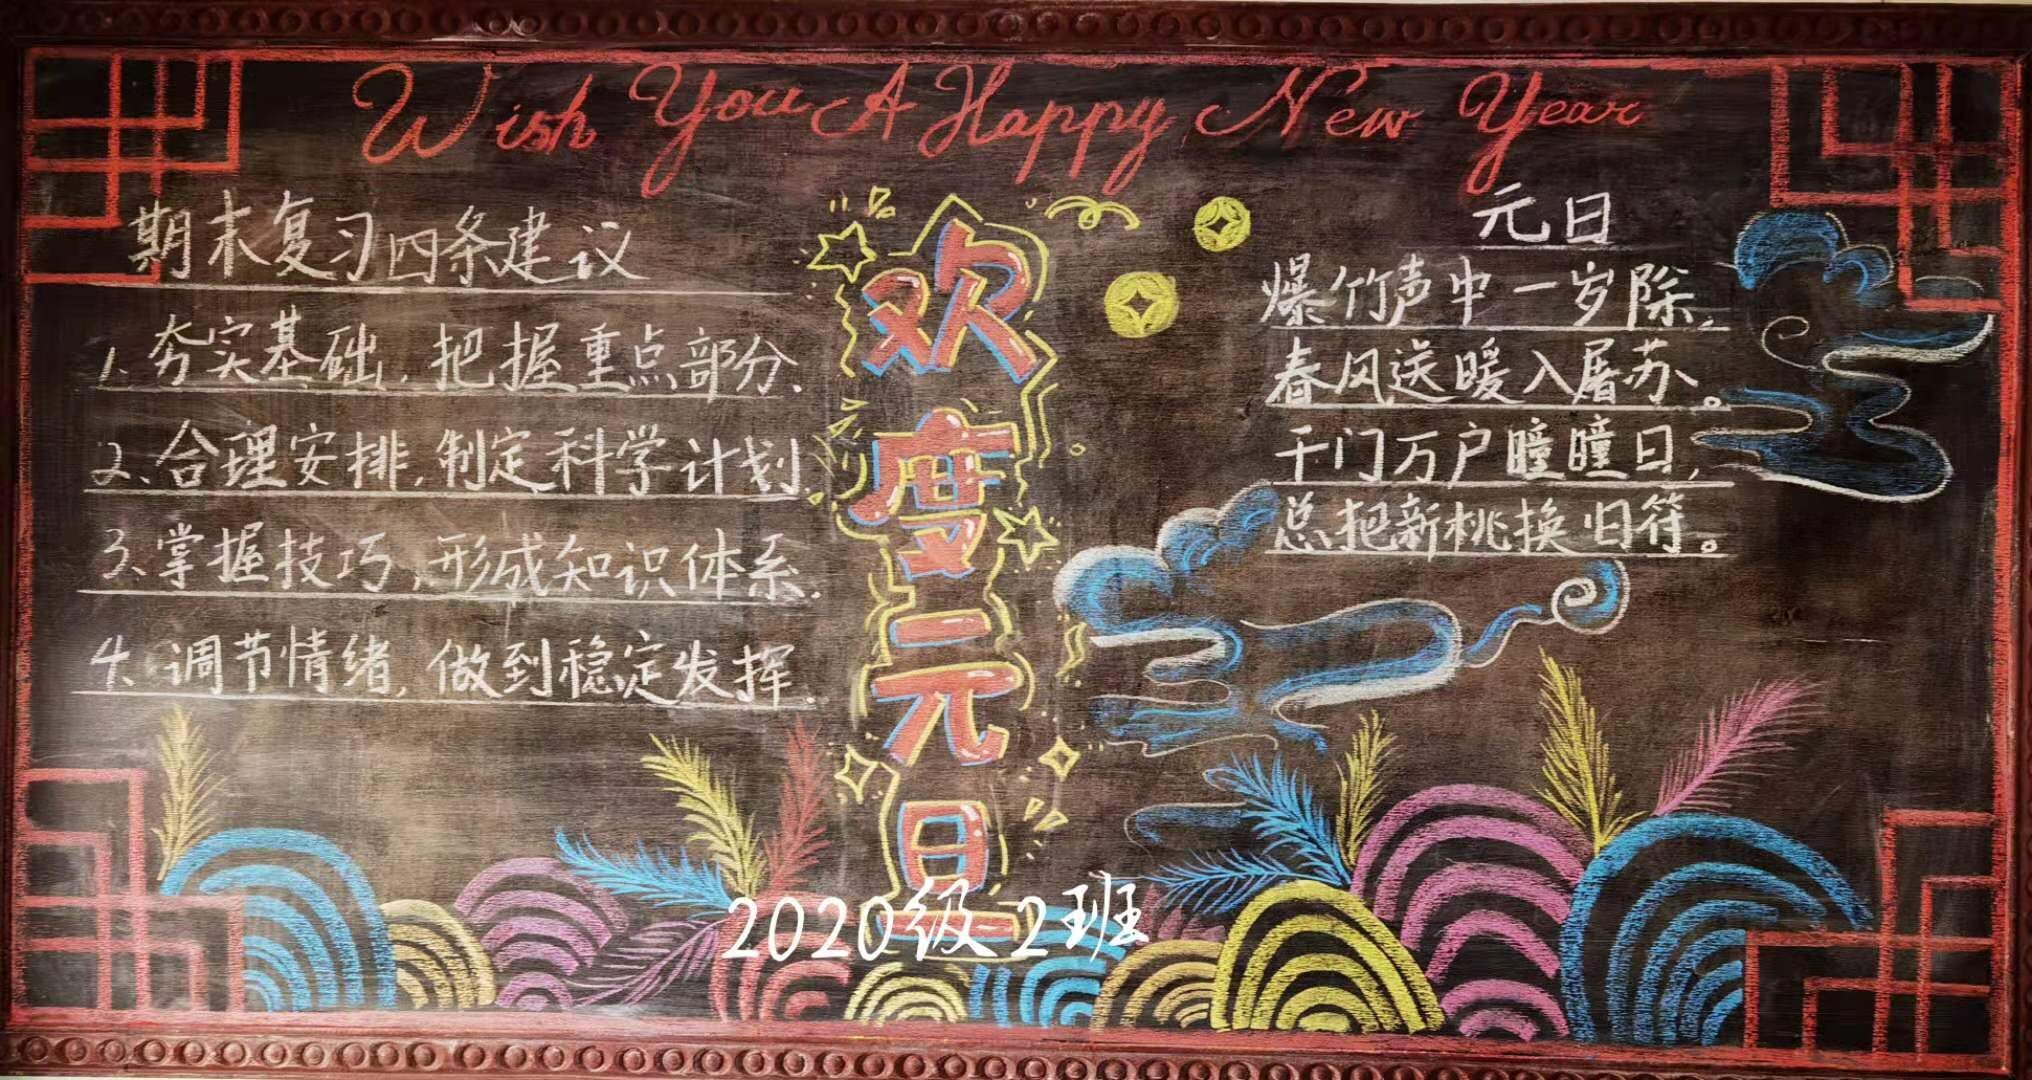 Wish You A Happy New Year
期末复习四条建议
1、夯实基础,把握重点部分、
2、合理安排,制定科学计划、
3、掌握技巧,形成知识体系、
4、调节情绪,做到稳定发挥、
欢度元旦
元日
爆竹声中一岁除,
春风送暖入屠苏。
千门万户瞳瞳日,
总把新桃换旧符。
2020级-2班